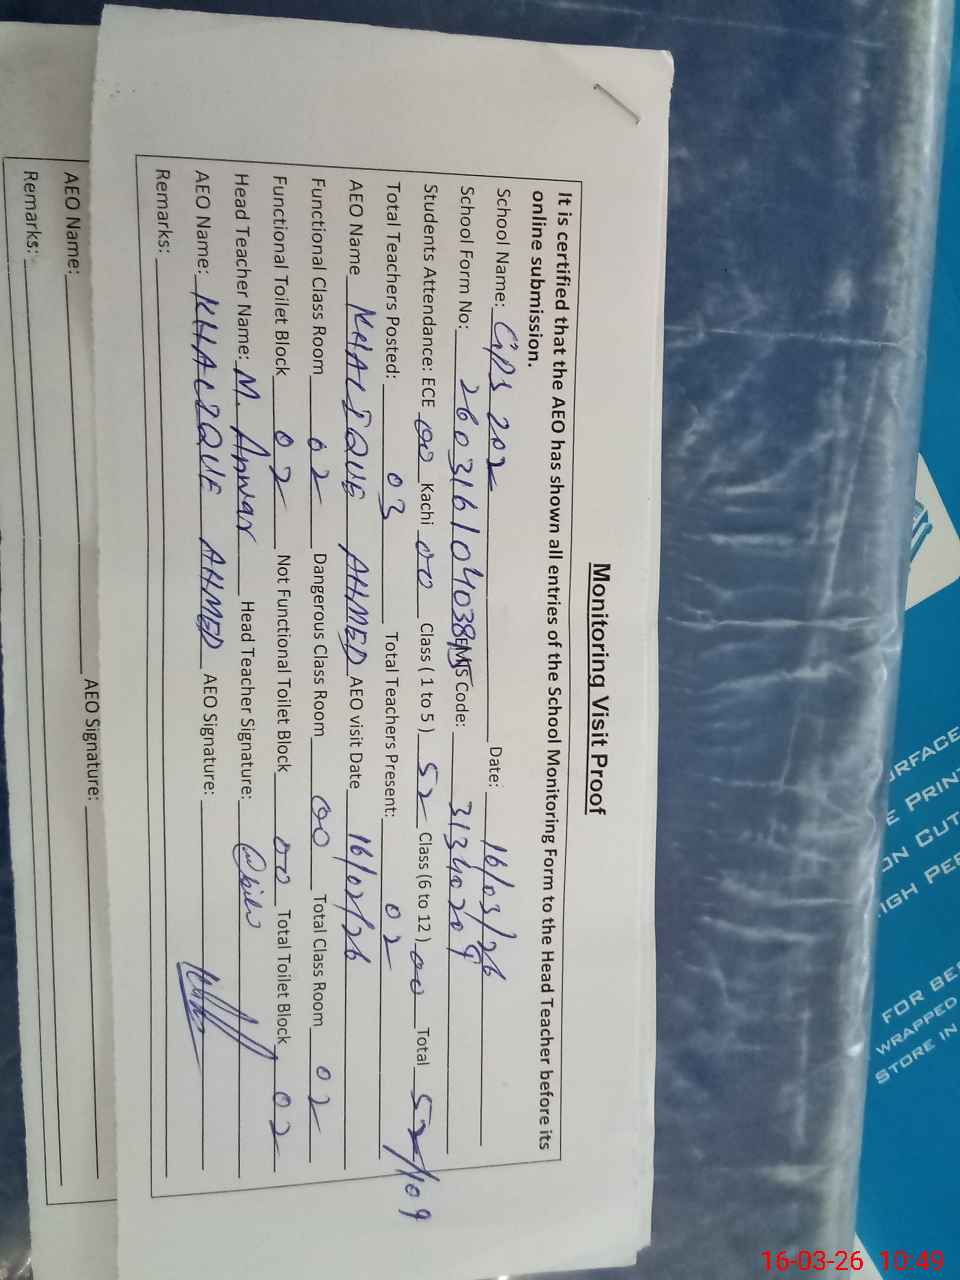 Monitoring Visit Proof
It is certified that the AEO has shown all entries of the School Monitoring Form to the Head Teacher before its
online submission.
School Name: GPS 202 Date: 16/03/26
School Form No: 26031610403845 EMIS Code: 31340209
Students Attendance: ECE 00 Kachi 00 Class ( 1 to 5 ) 52 Class (6 to 12 ) 00 Total 52/109
Total Teachers Posted: 03 Total Teachers Present: 02
AEO Name KHALIQUE AHMED AEO visit Date 16/02/26
Functional Class Room 02 Dangerous Class Room 00 Total Class Room 02
Functional Toilet Block 02 Not Functional Toilet Block 00 Total Toilet Block 02
Head Teacher Name: M. Anwar Head Teacher Signature:
AEO Name: KHALIQUE AHMED AEO Signature:
Remarks:
AEO Name: AEO Signature:
Remarks:
RFACE
E PRIN
ON CUT
IGH PE
FOR BE
WRAPPED
STORE IN
16-03-26 10:49